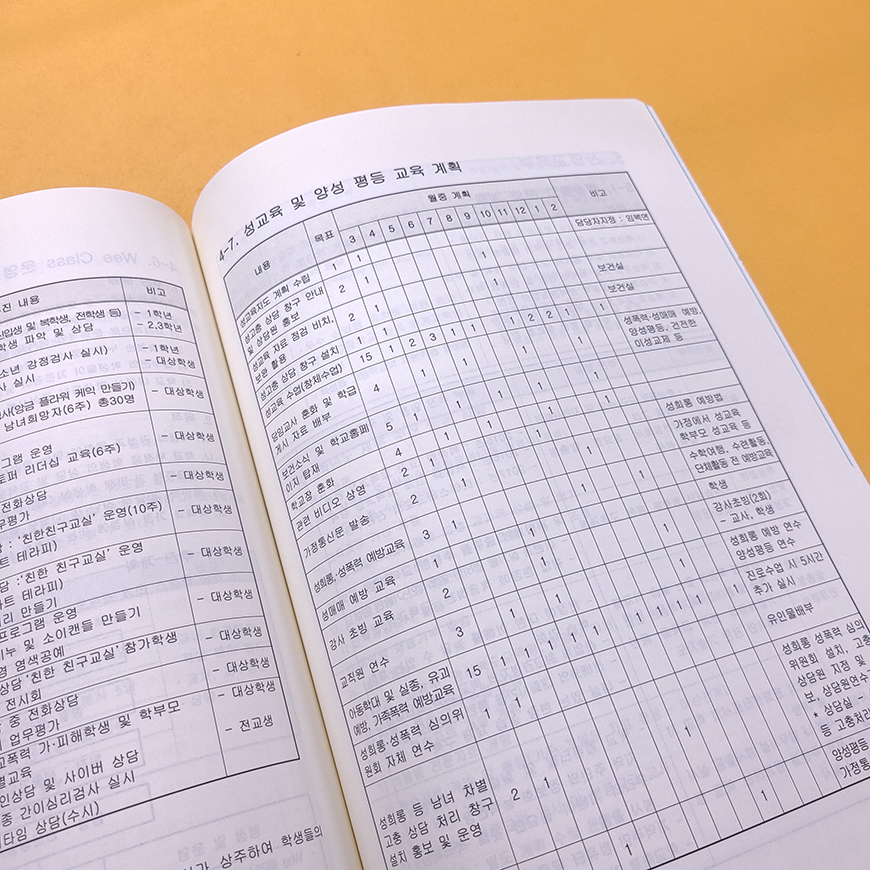 진 내용 비고
신입생 및 복학생, 전학생 등) - 1학년
학생 파악 및 상담 - 2,3학년
소년 강정검사 실시) - 1학년
사 실시 - 대상학생
사(앙금 플라워 케익 만들기)
남녀희망자(6주) 총30명
그램 운영 - 대상학생
토퍼 리더십 교육(6주)
전화상담 - 대상학생
무평가
: '친한친구교실' 운영(10주) - 대상학생
트 테라피)
당 :'친한 친구교실' 운영 - 대상학생
아트 테라피)
리 만들기
프로그램 운영 - 대상학생
비누 및 소이캔들 만들기
경 염색공예
상담'친한 친구교실' 참가학생 - 대상학생
전시회
중 전화상담 - 대상학생
업무평가 - 대상학생
교폭력 가·피해학생 및 학부모 - 전교생
별교육
인상담 및 사이버 상담
종 간이심리검사 실시
타임 상담(수시)
상주하여 학생들의
4-7. 성교육 및 양성 평등 교육 계획
내용 목표 월중 계획 비고
3 4 5 6 7 8 9 10 11 12 1 2
성교육지도 계획 수립 1 1 담당자지정 : 임복연
성고충 상담 창구 안내 2 1 1
및 상담원 홍보
성교육 자료 점검 비치, 2 1 1 보건실
보완 활용
성고충 상담 창구 설치 1 1 보건실
성교육 수업(창체수업) 15 1 2 3 1 1 1 2 2 1 1 성폭력·성매매 예방,
양성평등, 건전한
이성교제 등
담임교사 훈화 및 학급 4 1 1 1 1
게시 자료 배부
보건소식 및 학교홈페 5 1 1 1 1 1
이지 탑재
학교장 훈화 4 1 1 1 1 성희롱 예방법
관련 비디오 상영 2 1 1
가정통신문 발송 2 1 1 가정에서 성교육
학부모 성교육 등
성희롱·성폭력 예방교육 3 1 1 1 수학여행, 수련활동,
단체활동 전 예방교육
성매매 예방 교육 1 1 학생
강사 초빙 교육 2 1 1 강사초빙(2회)
- 교사, 학생
교직원 연수 3 1 1 1 성희롱 예방 연수
양성평등 연수
아동학대 및 실종, 유괴 15 1 1 1 1 1 1 1 1 1 1 진로수업 시 5시간
예방, 가족폭력 예방교육 추가 실시
성희롱·성폭력 심의위 1 1 유인물배부
원회 자체 연수
성희롱 등 남녀 차별 2 1 1 성희롱 성폭력 심의
고충 상담 처리 창구 위원회 설치, 고충
설치 홍보 및 운영 상담원 지정 및
보, 상담원연수
* 상담실 -
등 고충처리
1 1 양성평등
가정통